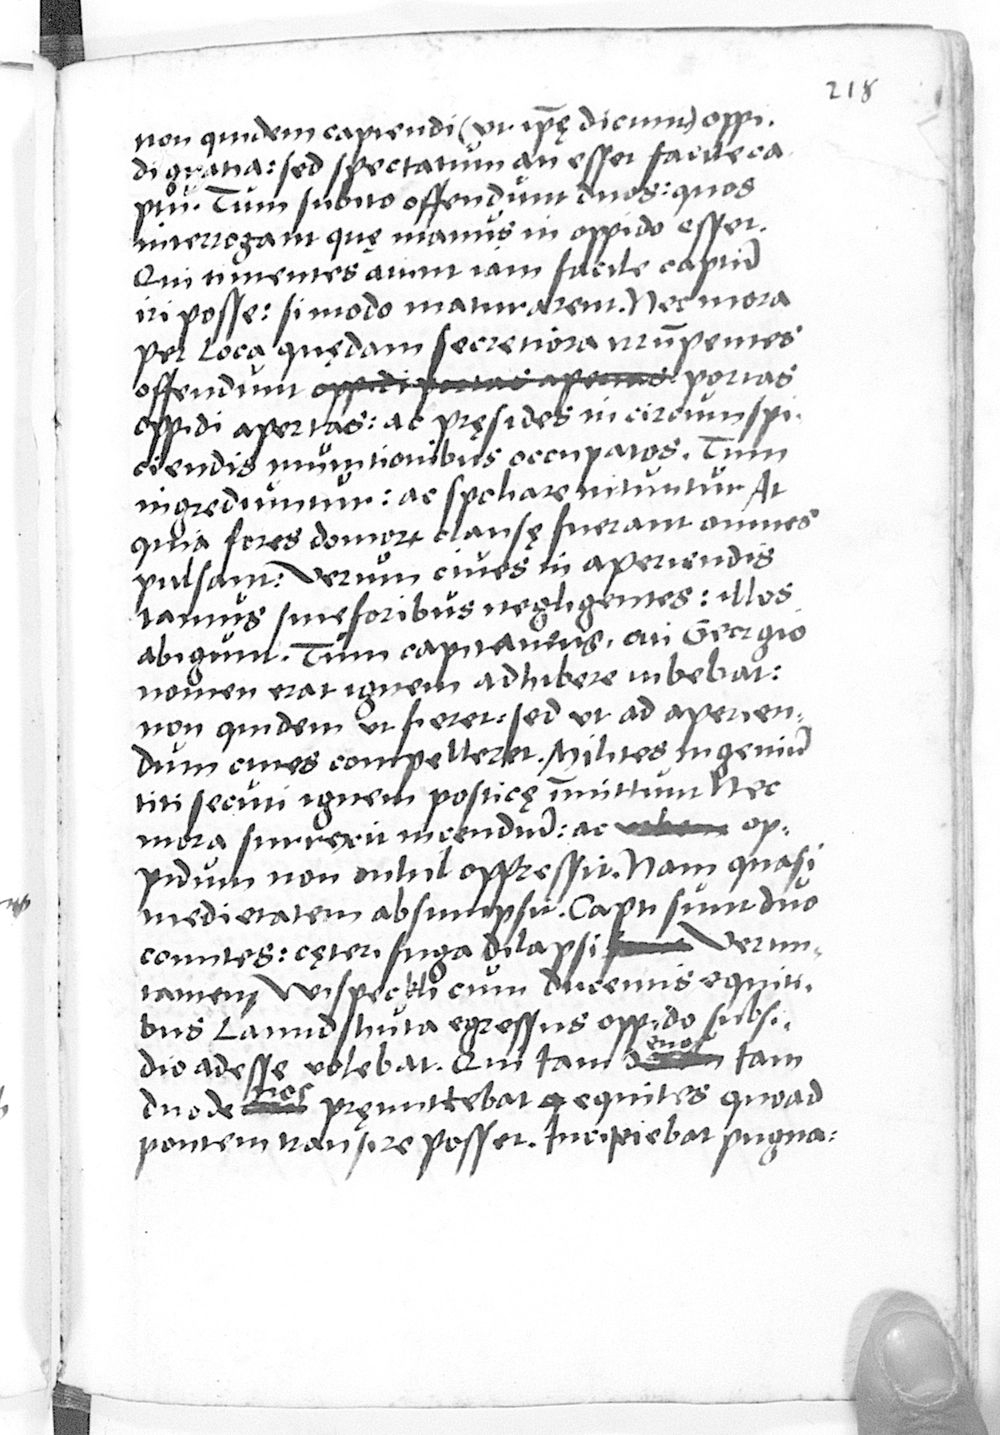 218
non quidem capiendi (vt ip̄ę dicunt) oppi-
di gratia: sed spectatum an esset facile ca-
ptū. Tum subito offendunt duos: quos
interrogant quę manus in oppido esset.
Qui timentes aiunt iam facile captū
iri posse: si modo maturarent. Nec mora
per loca quędam secretiora irrūpentes
offendunt oppidi portas apertas portas
oppidi apertas: ac pręsides in circumspi-
ciendis munitionibus occupatos. Tum
ingrediuntur: ac spoliare nituntur At
quia fores domorꝝ clausę fuerant omnes
pulsant: Verum ciues in aperiendis
tamus sine foribus negligentes: illos
abigunt. Tum capitaneus, cui Georgio
nomen erat ignem adhibere iubebat:
non quidem vt fieret: sed vt ad aperien-
dum ciues compelleret. Milites ingeniū
titi secuti ignem posticę īmittunt Nec
mora surrexit incendiū: ac op-
pidum non nihil oppressit. Nam quasi
medietatem absumpsit. Capti sunt duo
comites: cęteri fuga dilapsi Verum-
tamen Wispeckh cum ducentis equiti-
bus Lanndshuta egressus oppido subsi-
dio adesse volebat. Qui tam enos tam
duode nos pręmittebat equites quoad
pontem transire posset. Incipiebat pugna: